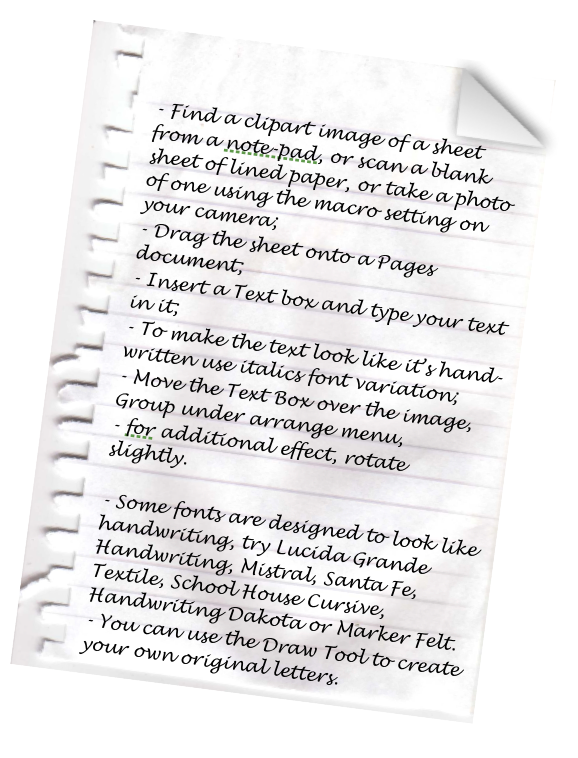 - Find a clipart image of a sheet
from a note-pad, or scan a blank
sheet of lined paper, or take a photo
of one using the macro setting on
your camera;
- Drag the sheet onto a Pages
document;
- Insert a Text box and type your text
in it;
- To make the text look like it's hand-
written use italics font variation;
- Move the Text Box over the image,
Group under arrange menu,
- for additional effect, rotate
slightly.
- Some fonts are designed to look like
handwriting, try Lucida Grande
Handwriting, Mistral, Santa Fe,
Textile, School House Cursive,
Handwriting Dakota or Marker Felt.
- You can use the Draw Tool to create
your own original letters.